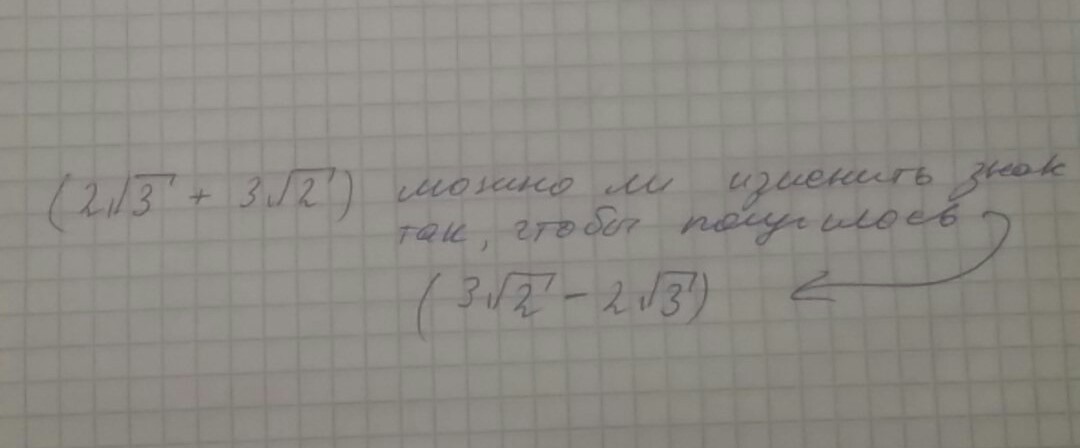 (2√3 + 3√2) можно ли изменить знак
так, чтобы получилось
(3√2 - 2√3)